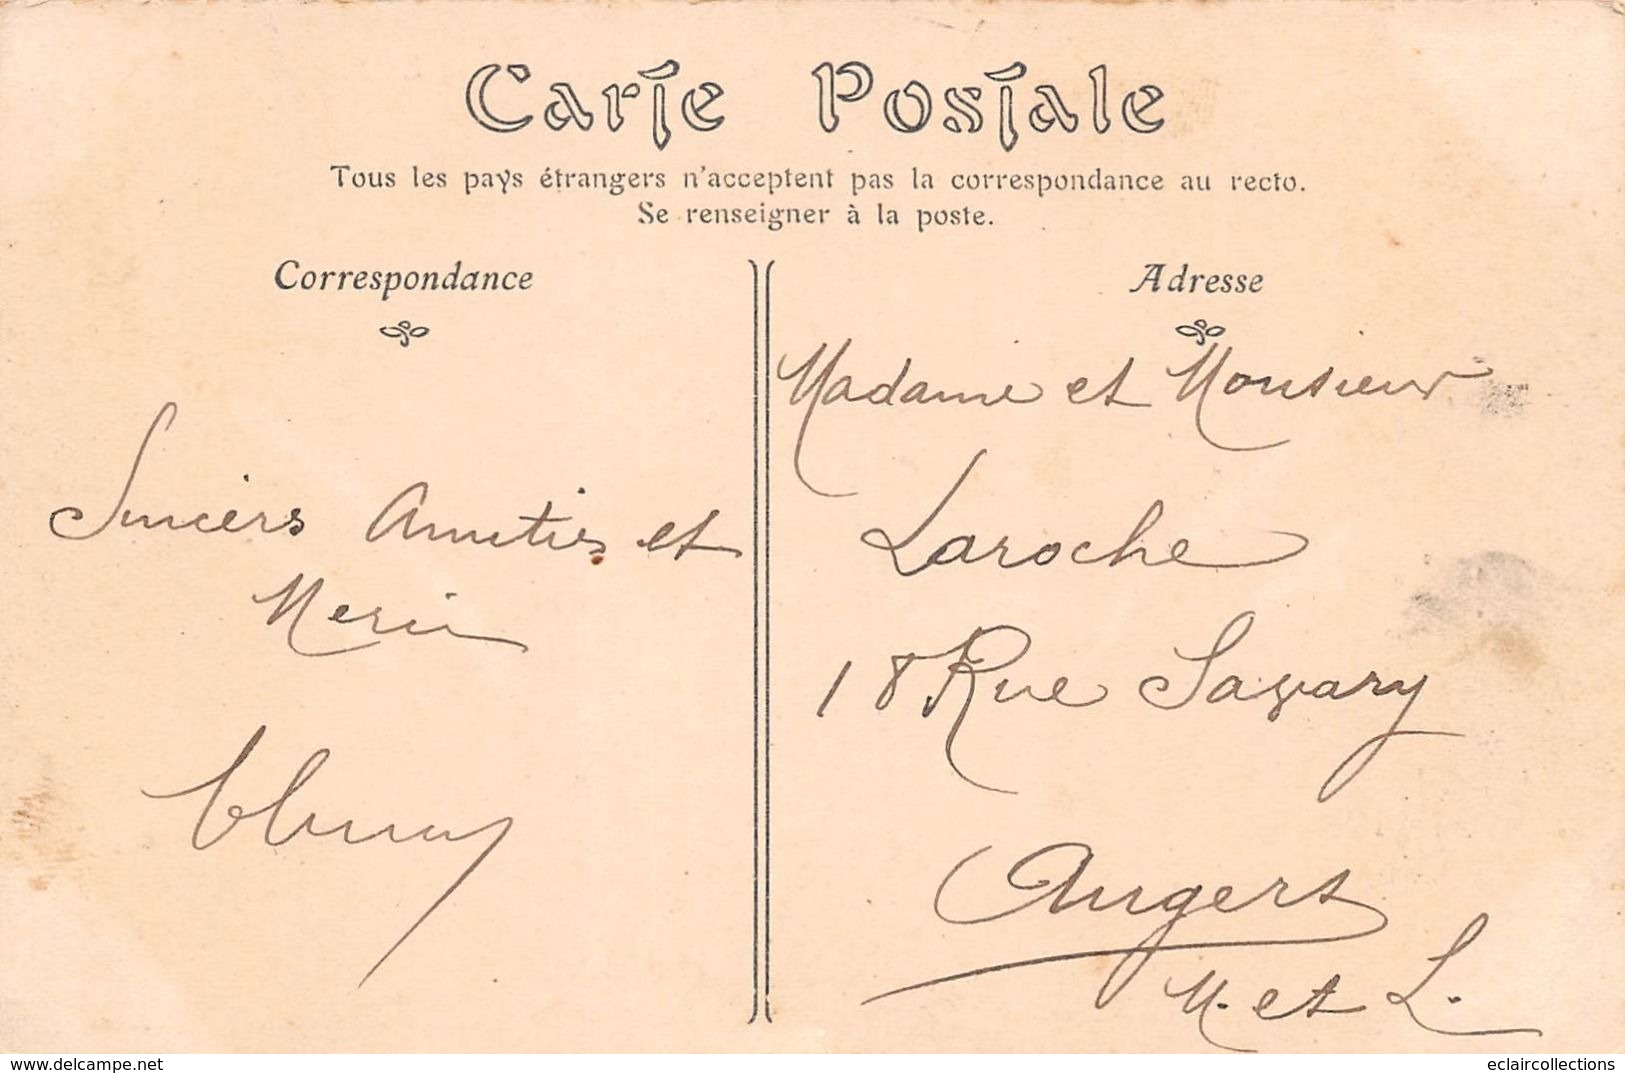 Carte Postale
Tous les pays étrangers n'acceptent pas la correspondance au recto.
Se renseigner à la poste.
Correspondance
Sincers Amitiés et
Merci
Adresse
Madame et Monsieur
Laroche
18 Rue Savary
Angers
M. et L.
www.delcampe.net
eclaircollections